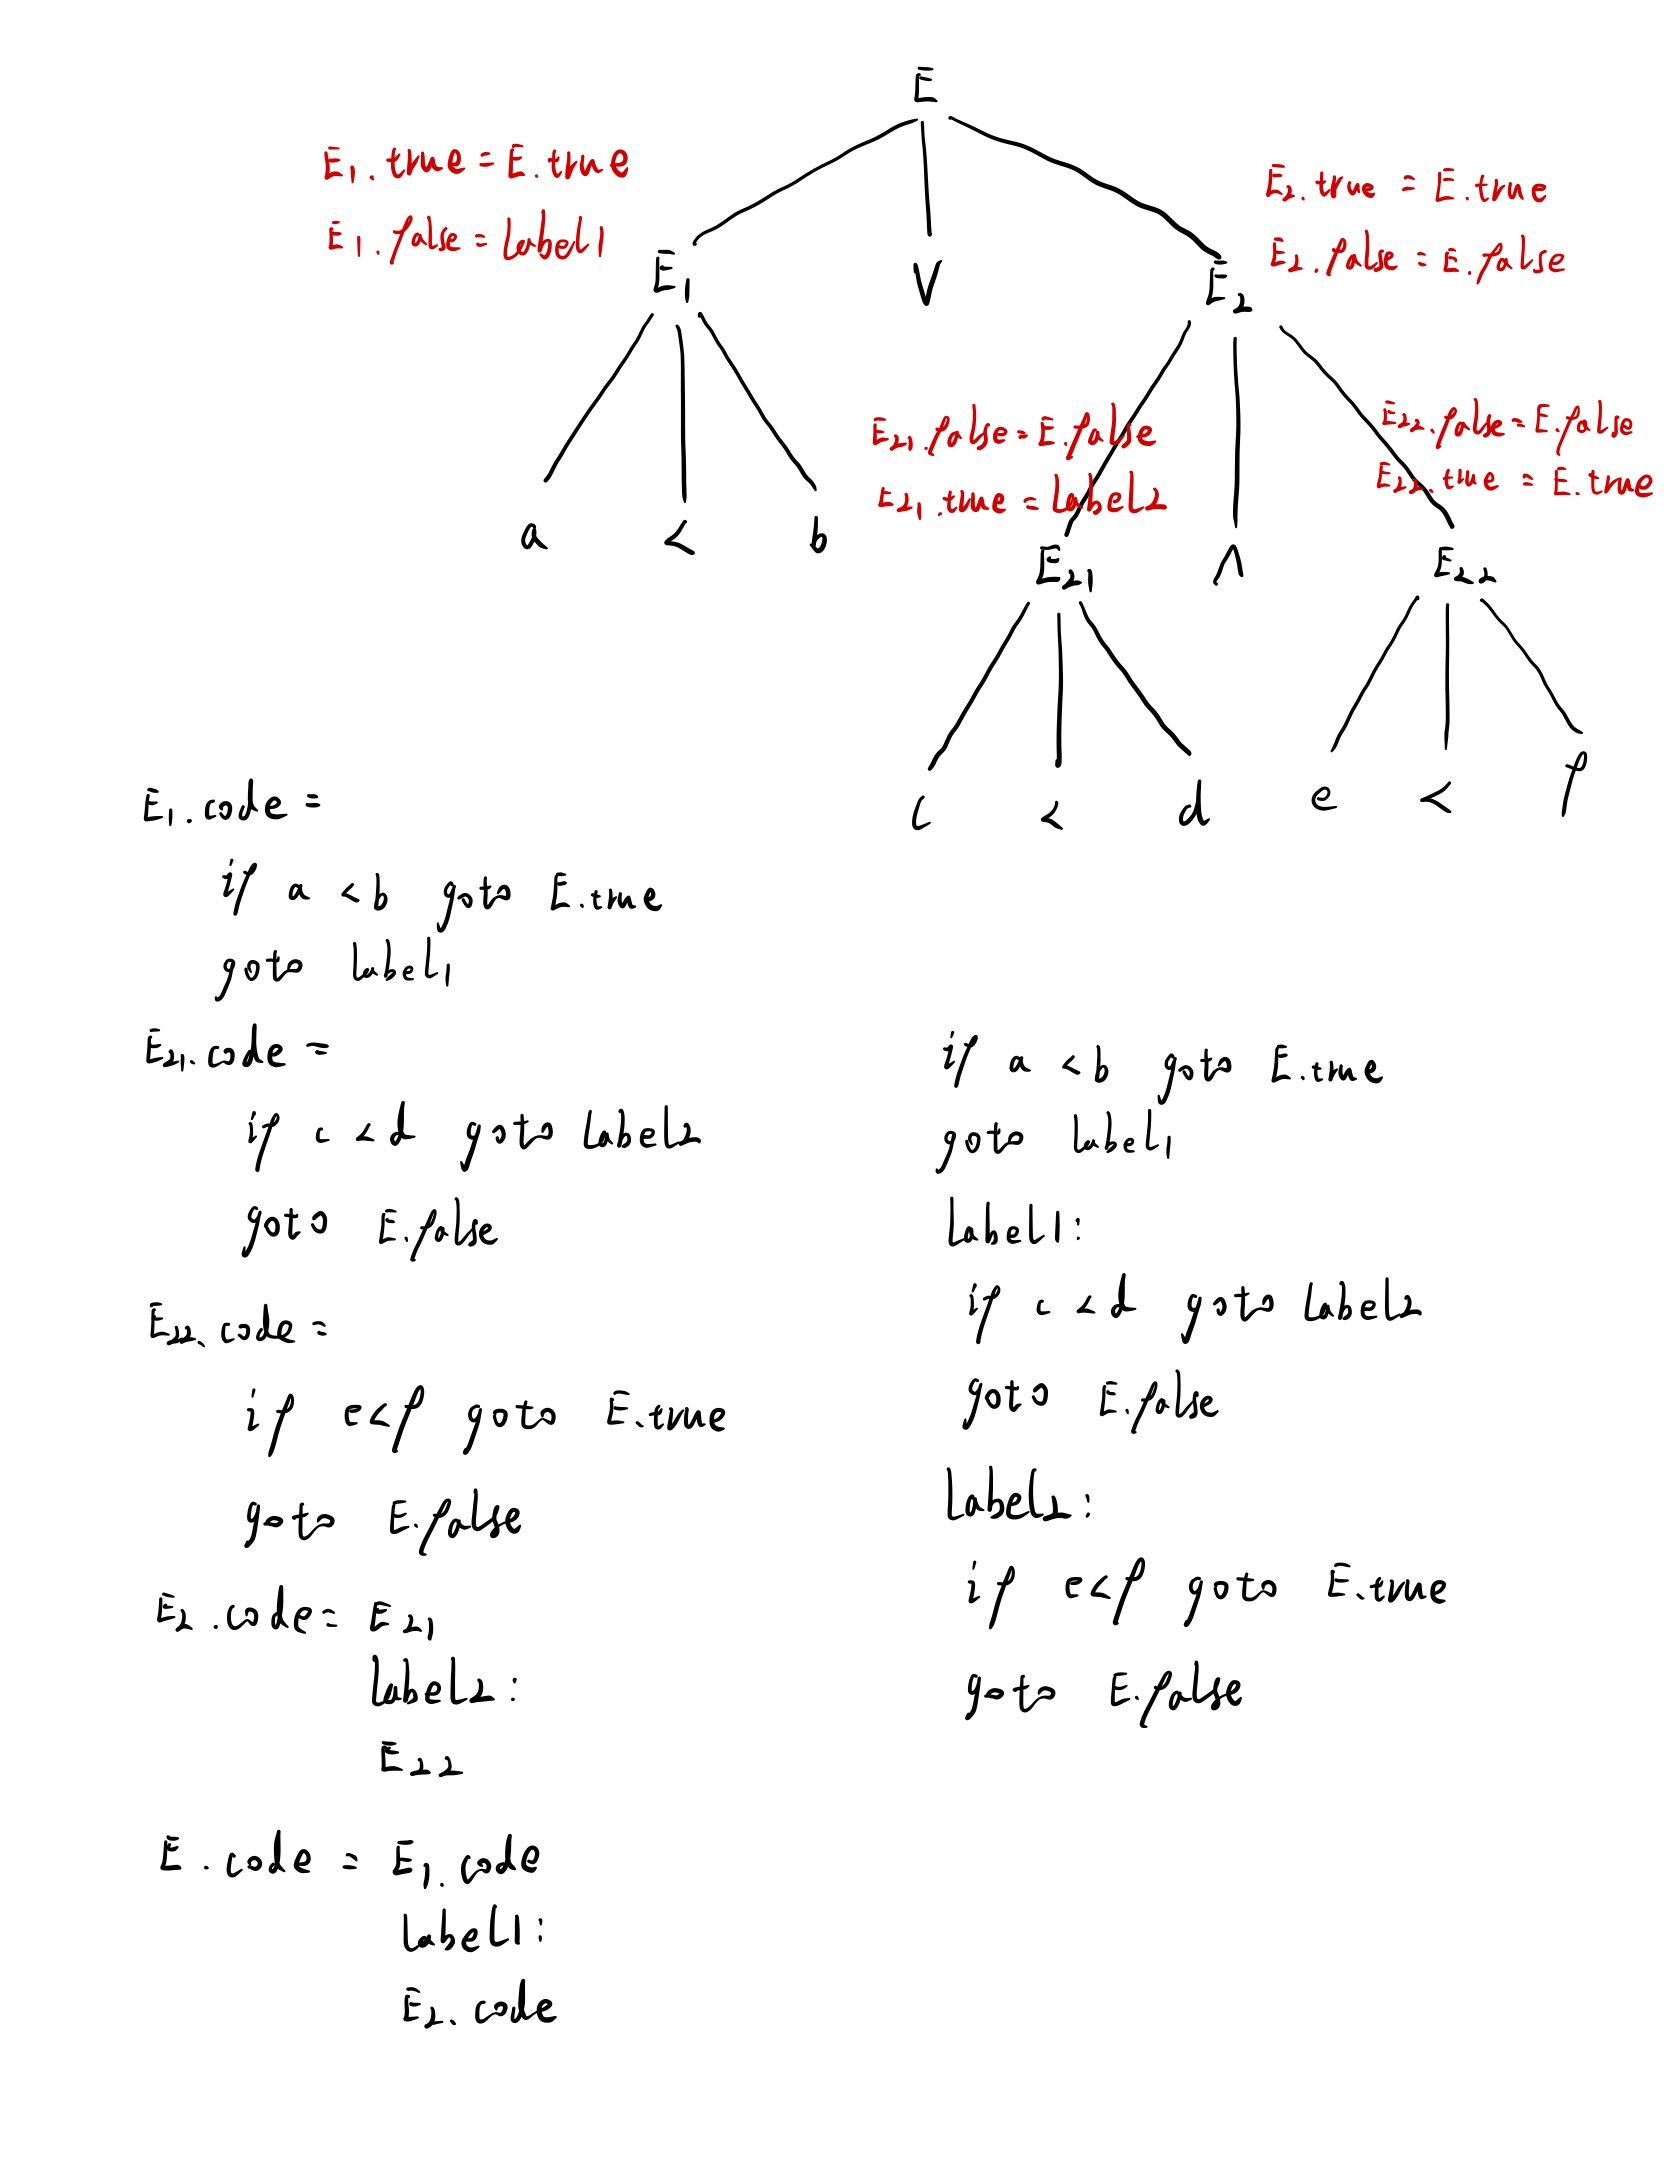 E
E₁.true = E.true
E₁.false = label1
E₂.true = E.true
E₂.false = E.false
E₁ ∨ E₂
E₂₁.false = E.false
E₂₁.true = label2
E₂₂.false = E.false
E₂₂.true = E.true
a < b
E₂₁ ∧ E₂₂
c < d e < f
E₁.code =
if a < b goto E.true
goto label1
E₂₁.code =
if c < d goto label2
goto E.false
E₂₂.code =
if e < f goto E.true
goto E.false
E₂.code = E₂₁
label2:
E₂₂
E.code = E₁.code
label1:
E₂.code
if a < b goto E.true
goto label1
label1:
if c < d goto label2
goto E.false
label2:
if e < f goto E.true
goto E.false